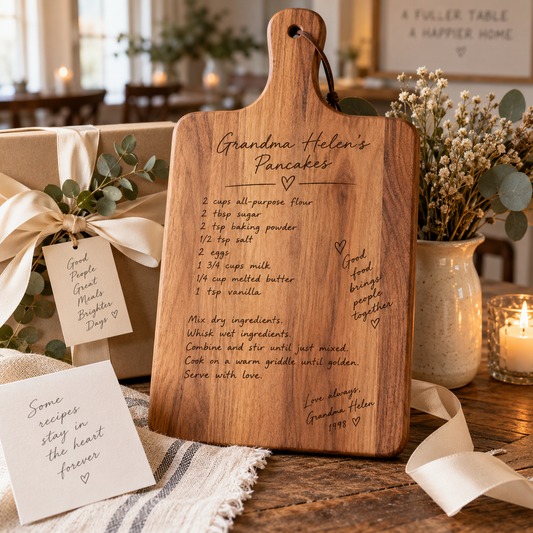 A FULLER TABLE
A HAPPIER HOME
Grandma Helen's
Pancakes
2 cups all-purpose flour
2 tbsp sugar
2 tsp baking powder
1/2 tsp salt
2 eggs
1 3/4 cups milk
1/4 cup melted butter
1 tsp vanilla
Good
food
brings
people
together
Mix dry ingredients.
Whisk wet ingredients.
Combine and stir until just mixed.
Cook on a warm griddle until golden.
Serve with love.
Love always,
Grandma Helen
1998
Good
People
Great
Meals
Brighter
Days
Some
recipes
stay in
the heart
forever